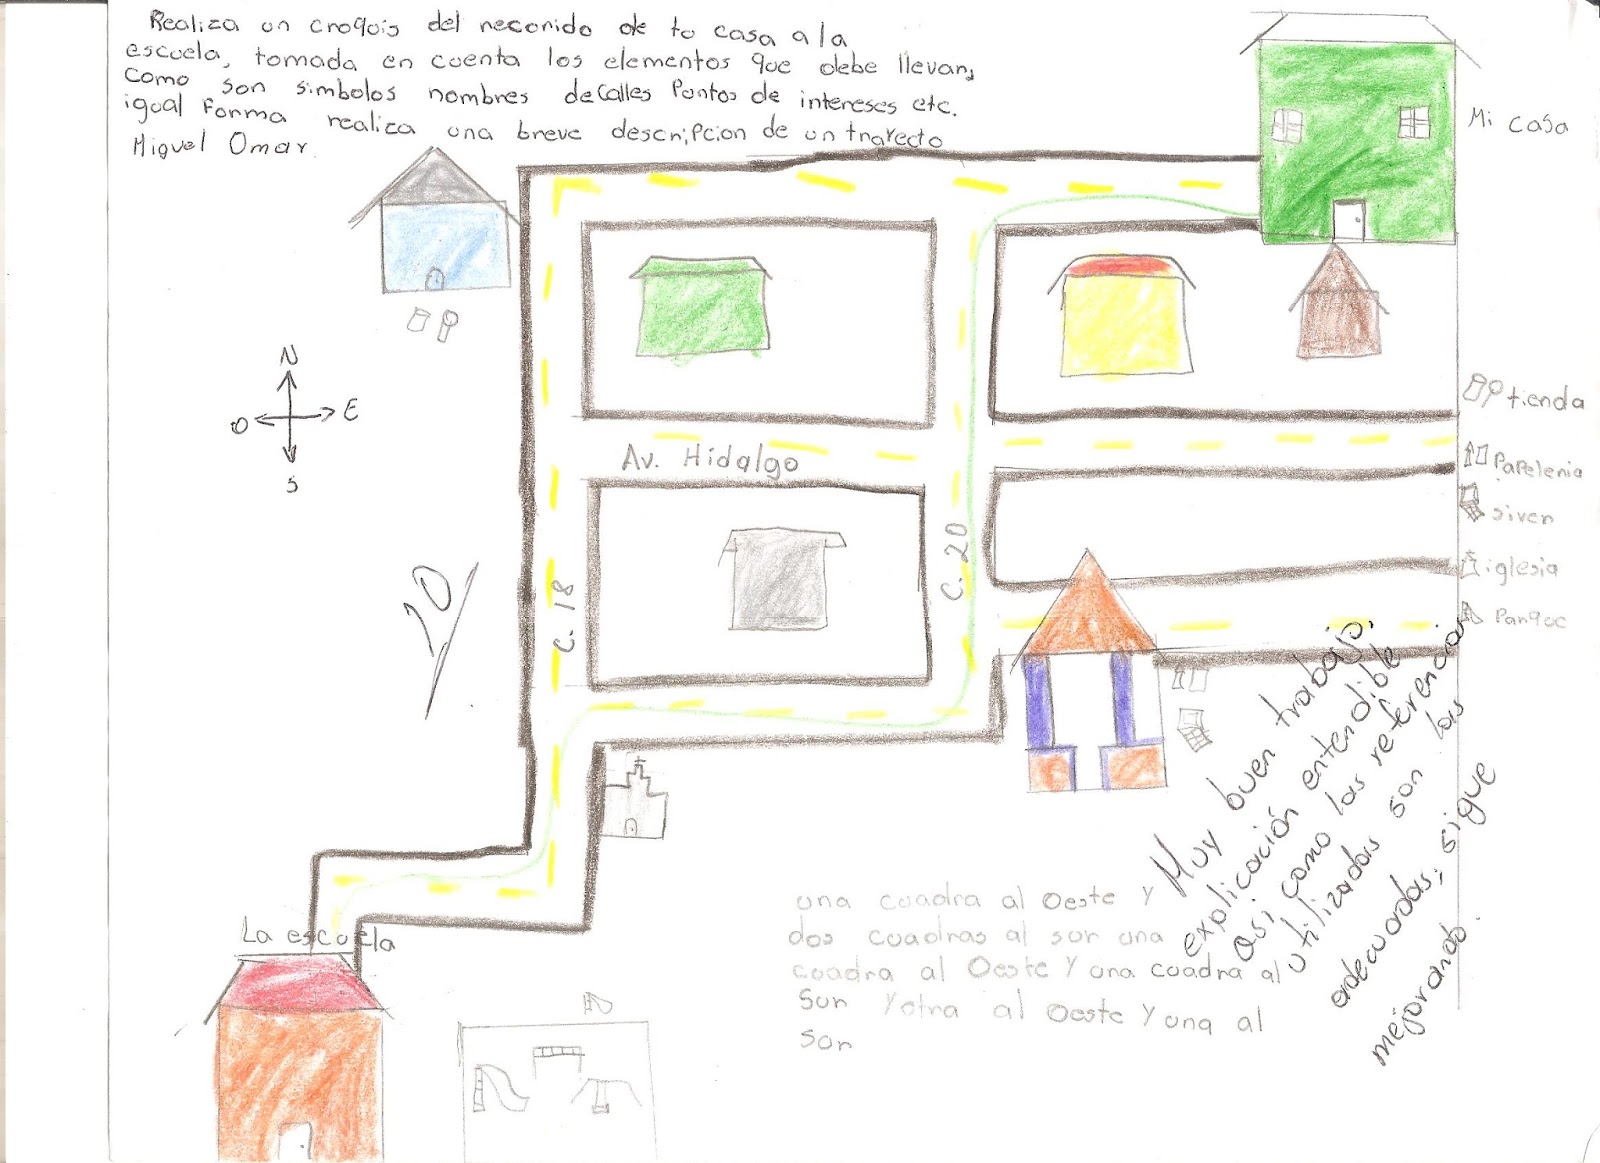 Realiza un croquis del recorrido de tu casa a la
escuela, tomada en cuenta los elementos que debe llevar,
Como son simbolos nombres de Calles Puntos de intereses etc.
igual Forma realiza una breve descripcion de un trayecto
Miguel Omar
Mi casa
N
O E
S
tienda
Av. Hidalgo
Papeleria
siver
C. 20
iglesia
C. 18
Parque
10/
Muy buen trabajo,
explicación entendible
asi como las referencias
utilizadas son las
adecuadas; sigue
mejorando.
una cuadra al Oeste y
dos cuadras al sur una
cuadra al Oeste Y una cuadra al
Sur Y otra al Oeste Y una al
sur
La escuela